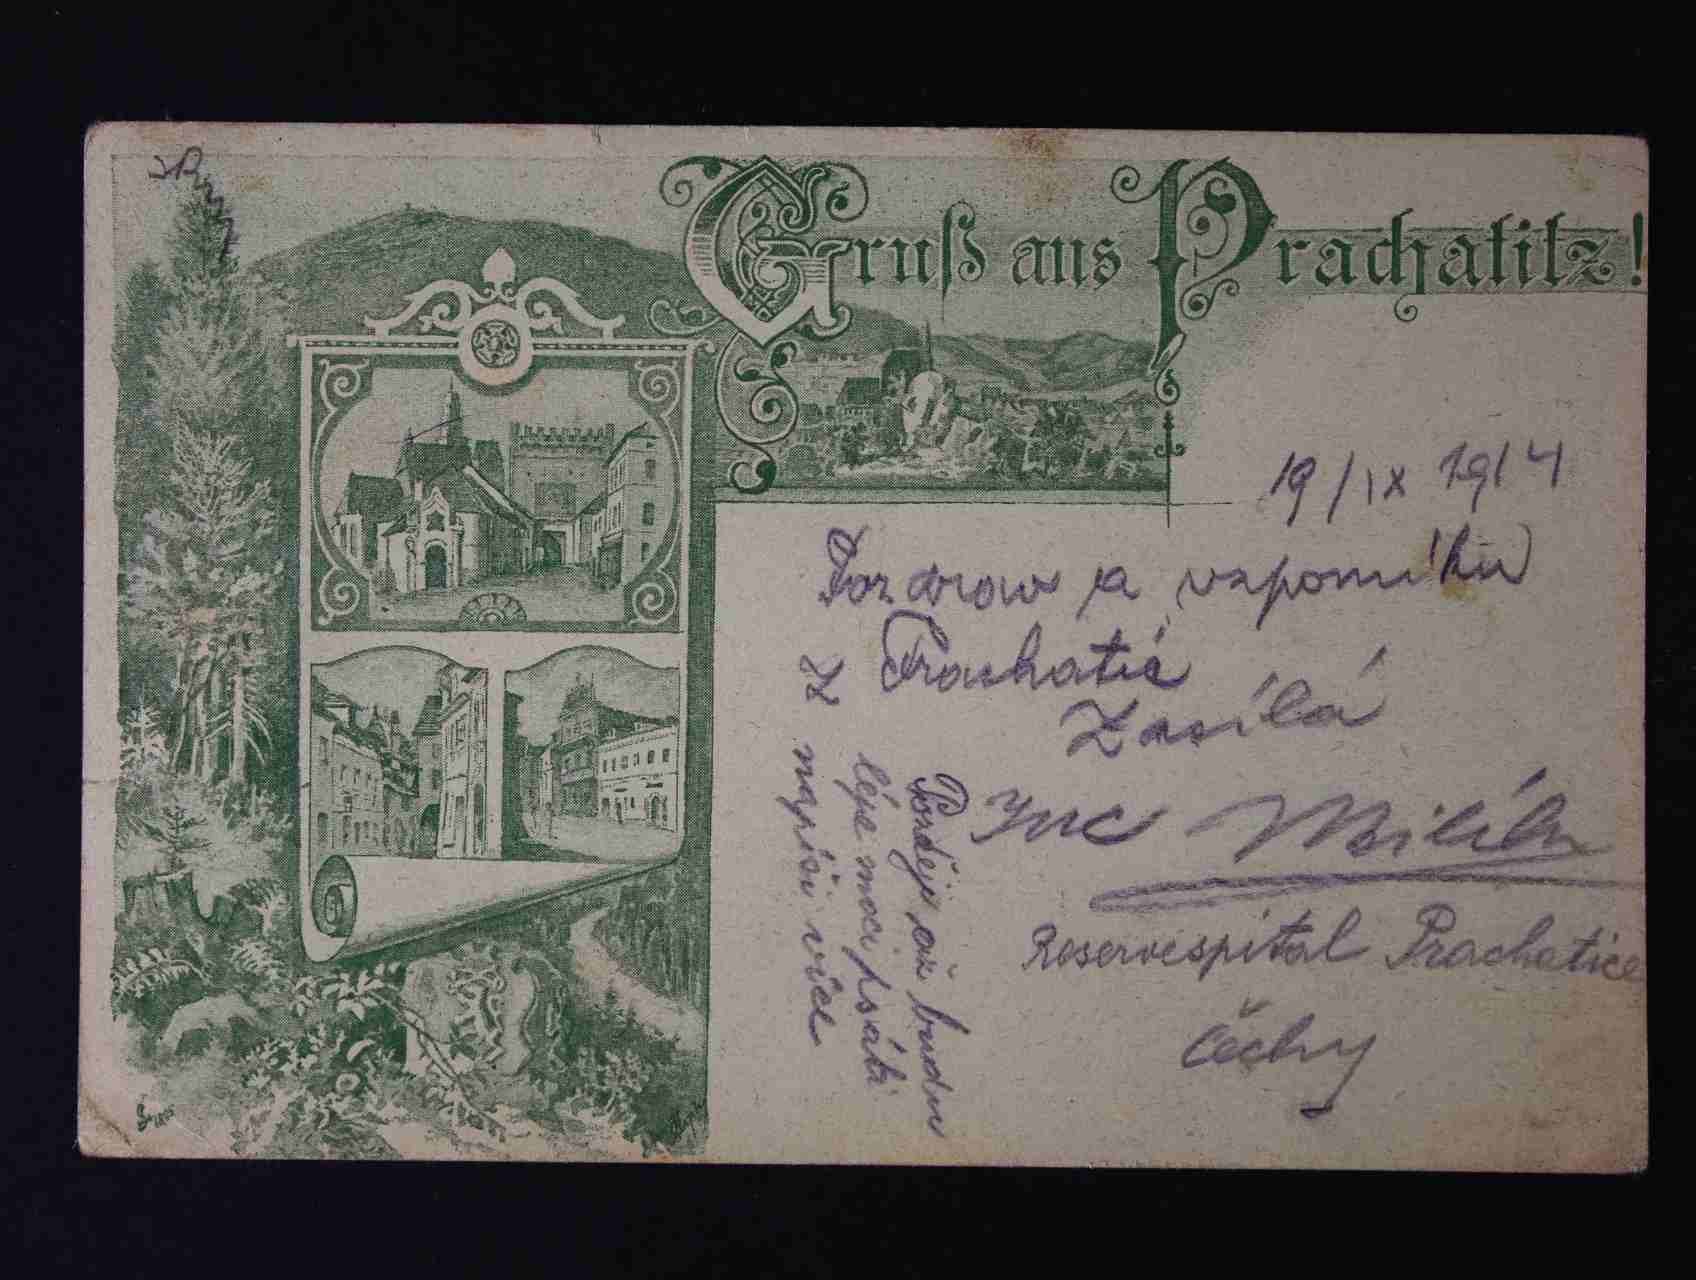 Gruß aus Prachatitz!
19/IX 1914
Pozdrav a vzpomínku
z Prachatic
Zasílá
Reservespital Prachatice
Čechy
Později až budu
lépe moci psáti
napíši více